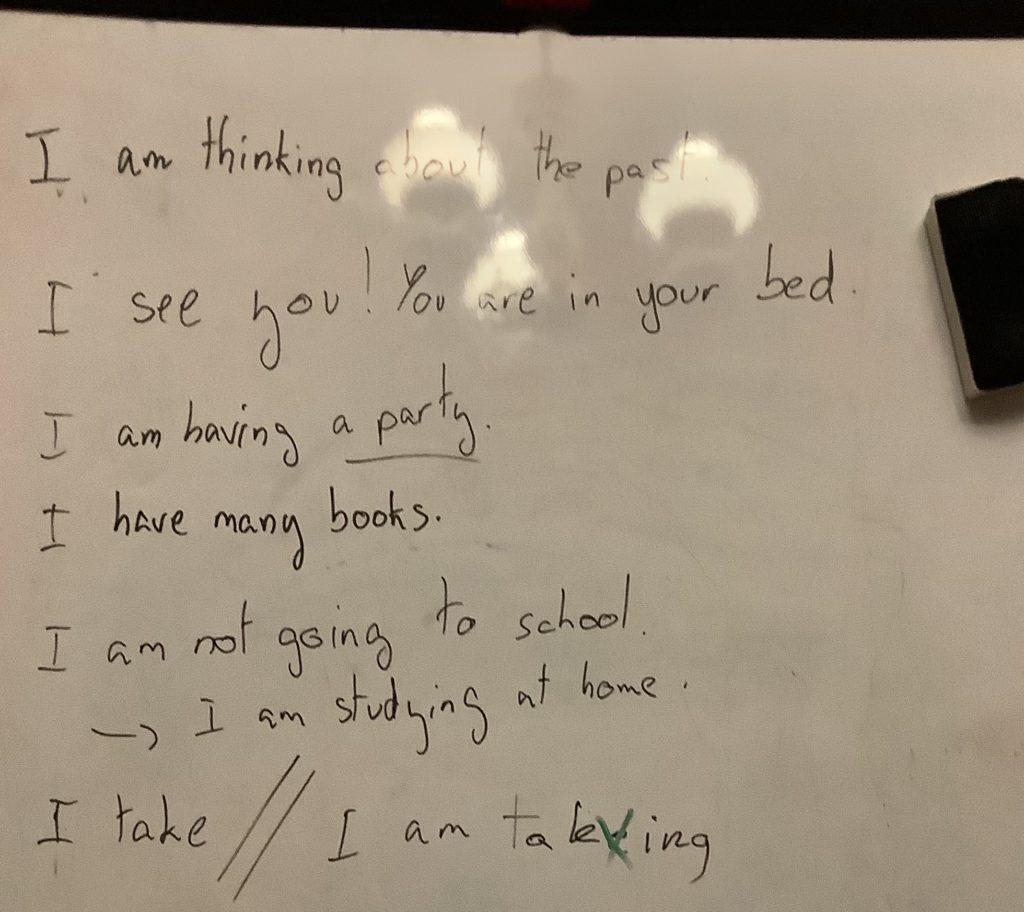 I am thinking about the past.
I see you! You are in your bed.
I am having a party.
I have many books.
I am not going to school.
→ I am studying at home.
I take // I am taking